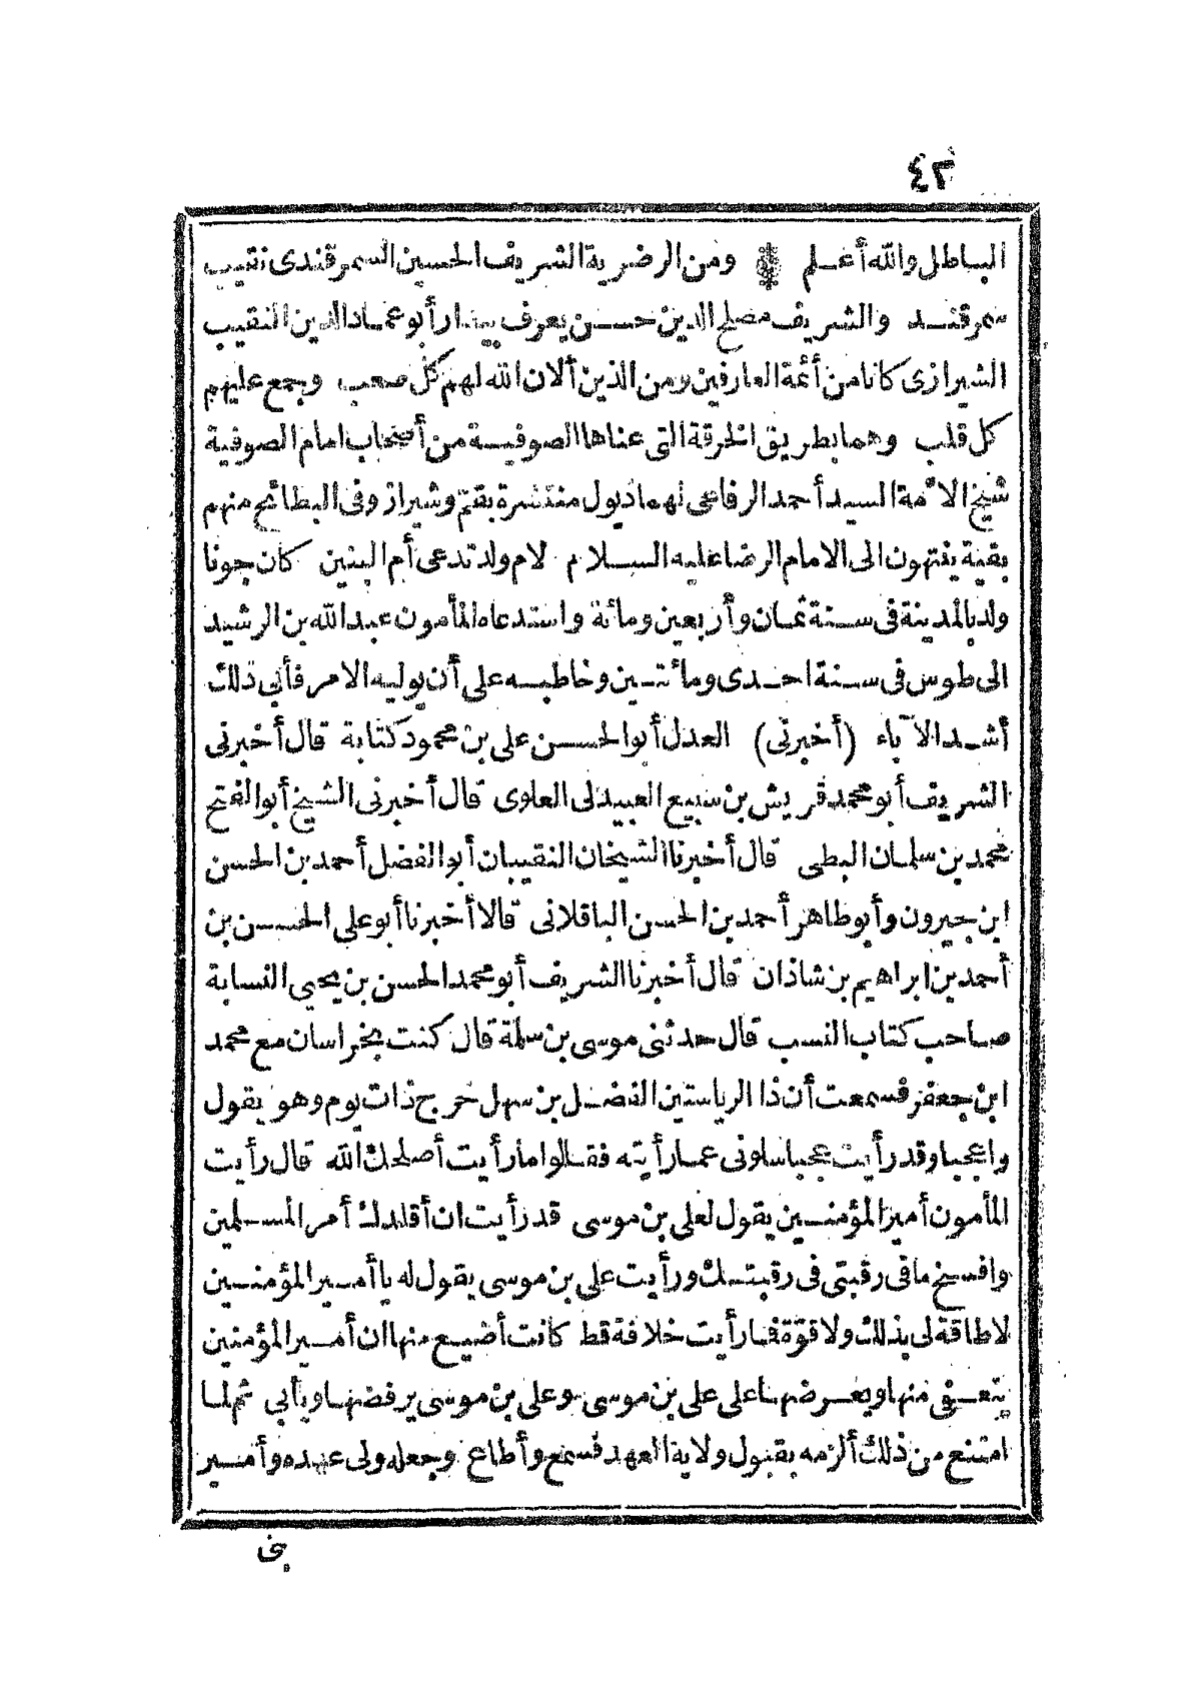 ٤٣
الباطل والله أعلم ومن الرضوية الشريف الحسين السمرقندى نقيب
سمرقند والشريف مصلح الدين حسن يعرف ببندار أبو عماد الدين النقيب
الشيرازى كانا من أئمة العارفين ومن الذين ألان الله لهم كل صعب وجمع عليهم
كل قلب وهما بطريق الخرقة التى عناها الصوفية من أصحاب امام الصوفية
شيخ الائمة السيد أحمد الرفاعى لهما ذيول منتشرة بقم وشيراز وفى البطائح منهم
بقية ينتهون الى الامام الرضا عليه السلام لام ولد تدعى أم البنين كان جونا
ولد بالمدينة فى سنة ثمان وأربعين ومائة واستدعاه المأمون عبد الله بن الرشيد
الى طوس فى سنة احدى ومائتين وخاطبه على أن يوليه الامر فأبى ذلك
أشد الآباء (أخبرنى) العدل أبو الحسن على بن محمود كتابة قال أخبرنى
الشريف أبو محمد قريش بن سبيع العبيدلى العلوى قال أخبرنى الشيخ أبو الفتح
محمد بن سلمان البطى قال أخبرنا الشيخان النقيبان أبو الفضل أحمد بن الحسن
ابن جيرون وأبو طاهر أحمد بن الحسن الباقلانى قالا أخبرنا أبو على الحسن بن
أحمد بن ابراهيم بن شاذان قال أخبرنا الشريف أبو محمد الحسن بن يحيى النسابة
صاحب كتاب النسب قال حدثنى موسى بن سلمة قال كنت بخراسان مع محمد
ابن جعفر فسمعت أن ذا الرياستين الفضل بن سهل خرج ذات يوم وهو يقول
واعجبا وقد رأيت عجبا سلونى عما رأيته فقالوا ما رأيت أصلحك الله قال رأيت
المأمون أمير المؤمنين يقول لعلى بن موسى قد رأيت ان أقلدك أمر المسلمين
وافسخ ما فى رقبتى فى رقبتك ورأيت على بن موسى يقول له يا أمير المؤمنين
لا طاقة لى بذلك ولا قوة فما رأيت خلافة قط كانت أضيع منها ان أمير المؤمنين
يتعفى منها ويعرضها على على بن موسى وعلى بن موسى يرفضها ويأبى ثم لما
امتنع من ذلك ألزمه بقبول ولاية العهد فسمع وأطاع وجعله ولى عهده وأمير
بنى